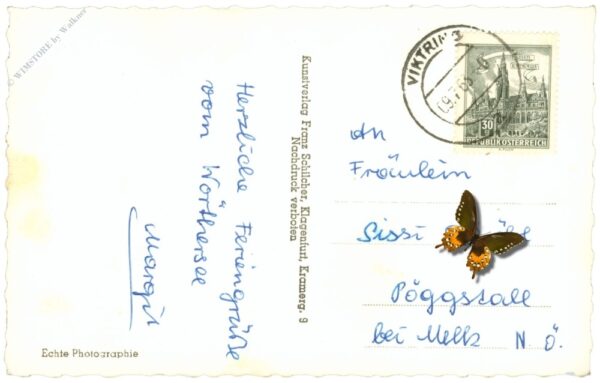 © WIMSTORE by Walkner
Herzliche Feriengrüße
vom Wörthersee
Margit
Echte Photographie
Kunstverlag Franz Schilcher, Klagenfurt, Kramerg. 9
Nachdruck verboten
VIKTRING
09.7.6
30
REPUBLIK ÖSTERREICH
An
Fräulein
Sissi
Pöggstall
bei Melk N. Ö.